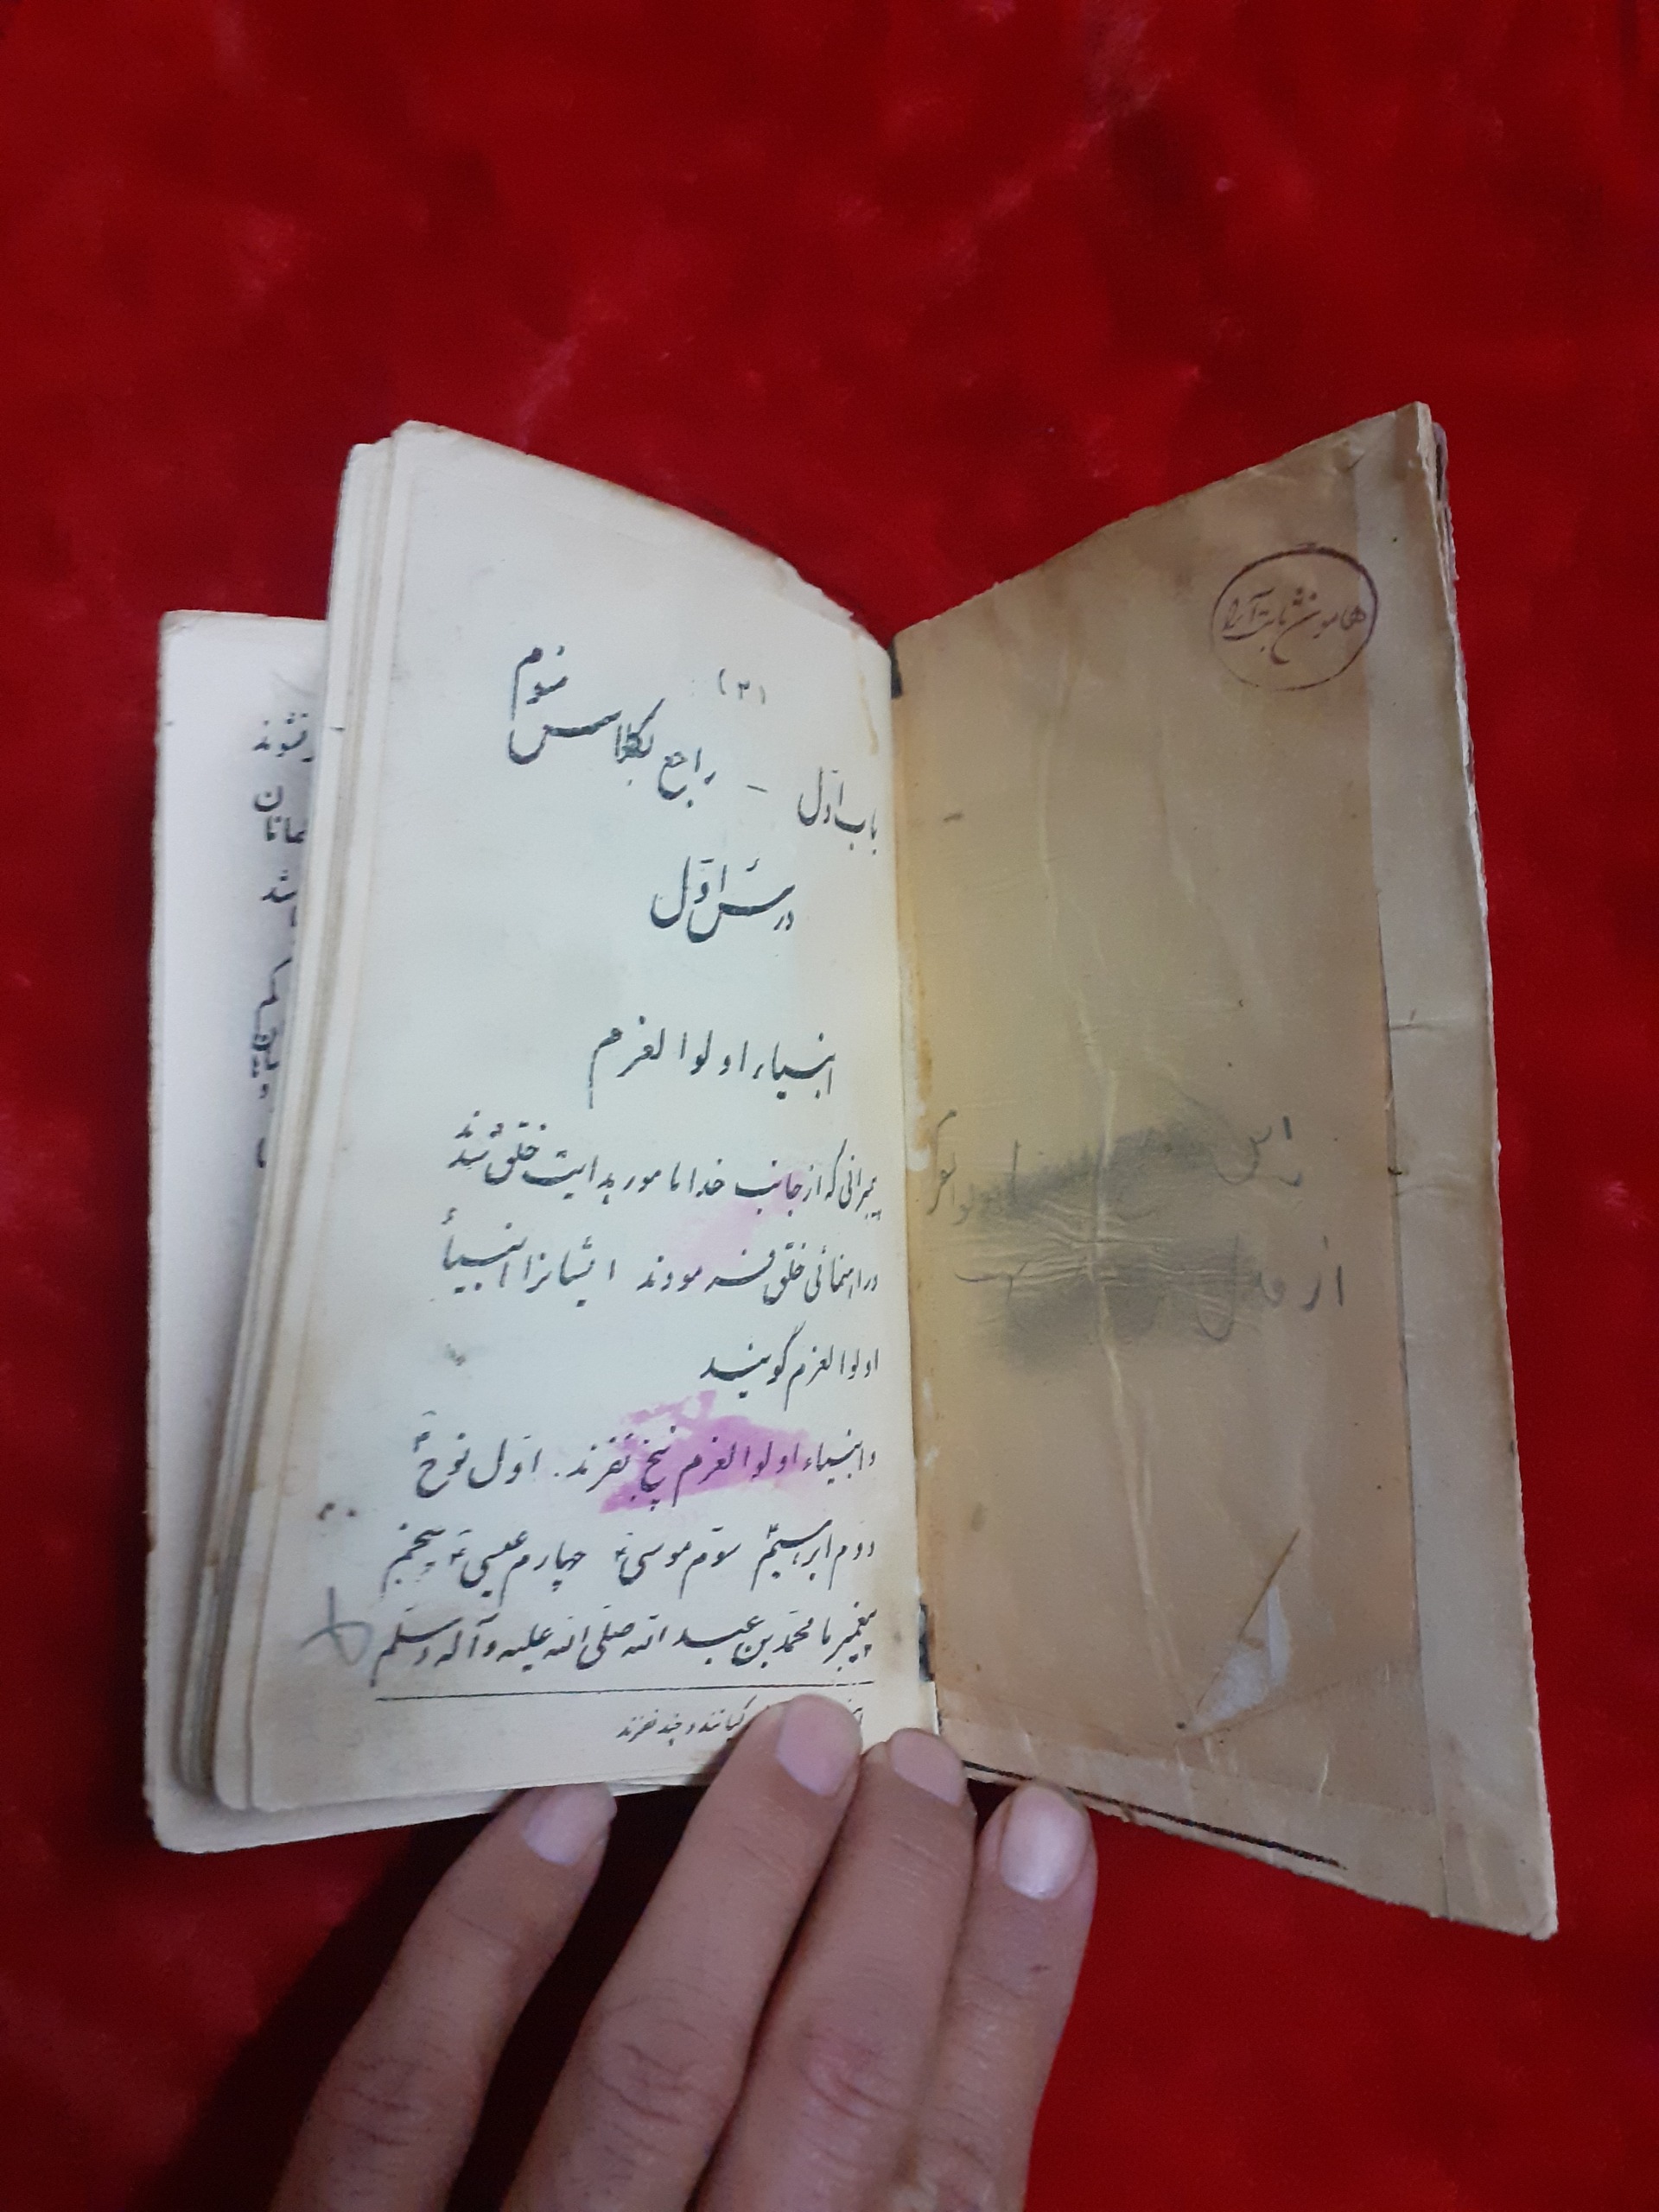 هامون ثابت آرا
از
(۳)
باب اوّل - راجع بکلاس سوم
درس اوّل
انبیاء اولوا العزم
پیمبرانی که از جانب خدا مامور هدایت خلق شدند
و راهنمائی خلق فرمودند ایشانرا انبیأ
اولوا العزم گویند
و انبیاء اولوا العزم پنج نفرند. اوّل نوحؑ
دوّم ابراهیمؑ سوّم موسیؑ چهارم عیسیؑ پنجم
پیغمبر ما محمّد بن عبد الله صلّی الله علیه و آله و سلّم
کیانند و چند نفرند